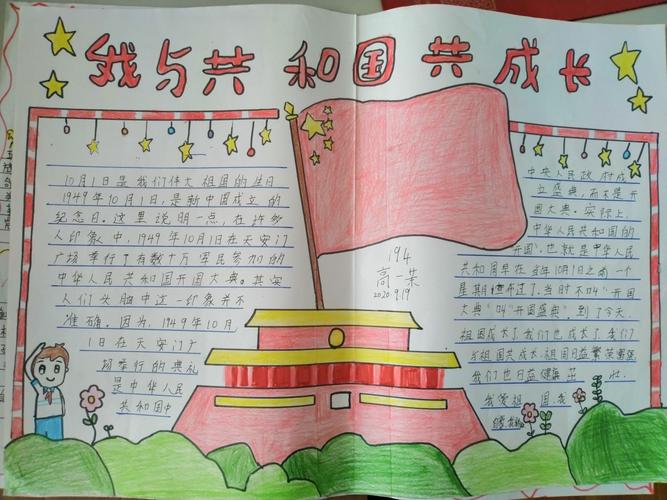 我与共和国共成长
10月1日是我们伟大祖国的生日
1949年10月1日,是新中国成立的
纪念日。这里说明一点,在许多
人印象中,1949年10月1日在天安门
广场举行了有数十万军民参加的
中华人民共和国开国大典。其实
人们头脑中这一印象并不
准确。因为,1949年10月
1日在天安门广
场举行的典礼
是中华人民
共和国中
194
高一荣
2020.9.19
中央人民政府成
立盛典,而不是开
国大典。实际上,
中华人民共和国的
"开国",也就是中华人民
共和国早在当年10月1日之前一个
星期 过了,当时不叫"开国
大典"叫"开国盛典",到了今天,
祖国成长了我们也成长了我们
与祖国共成长.祖国日益繁荣
我们也日益健康 壮.
我爱祖国,我